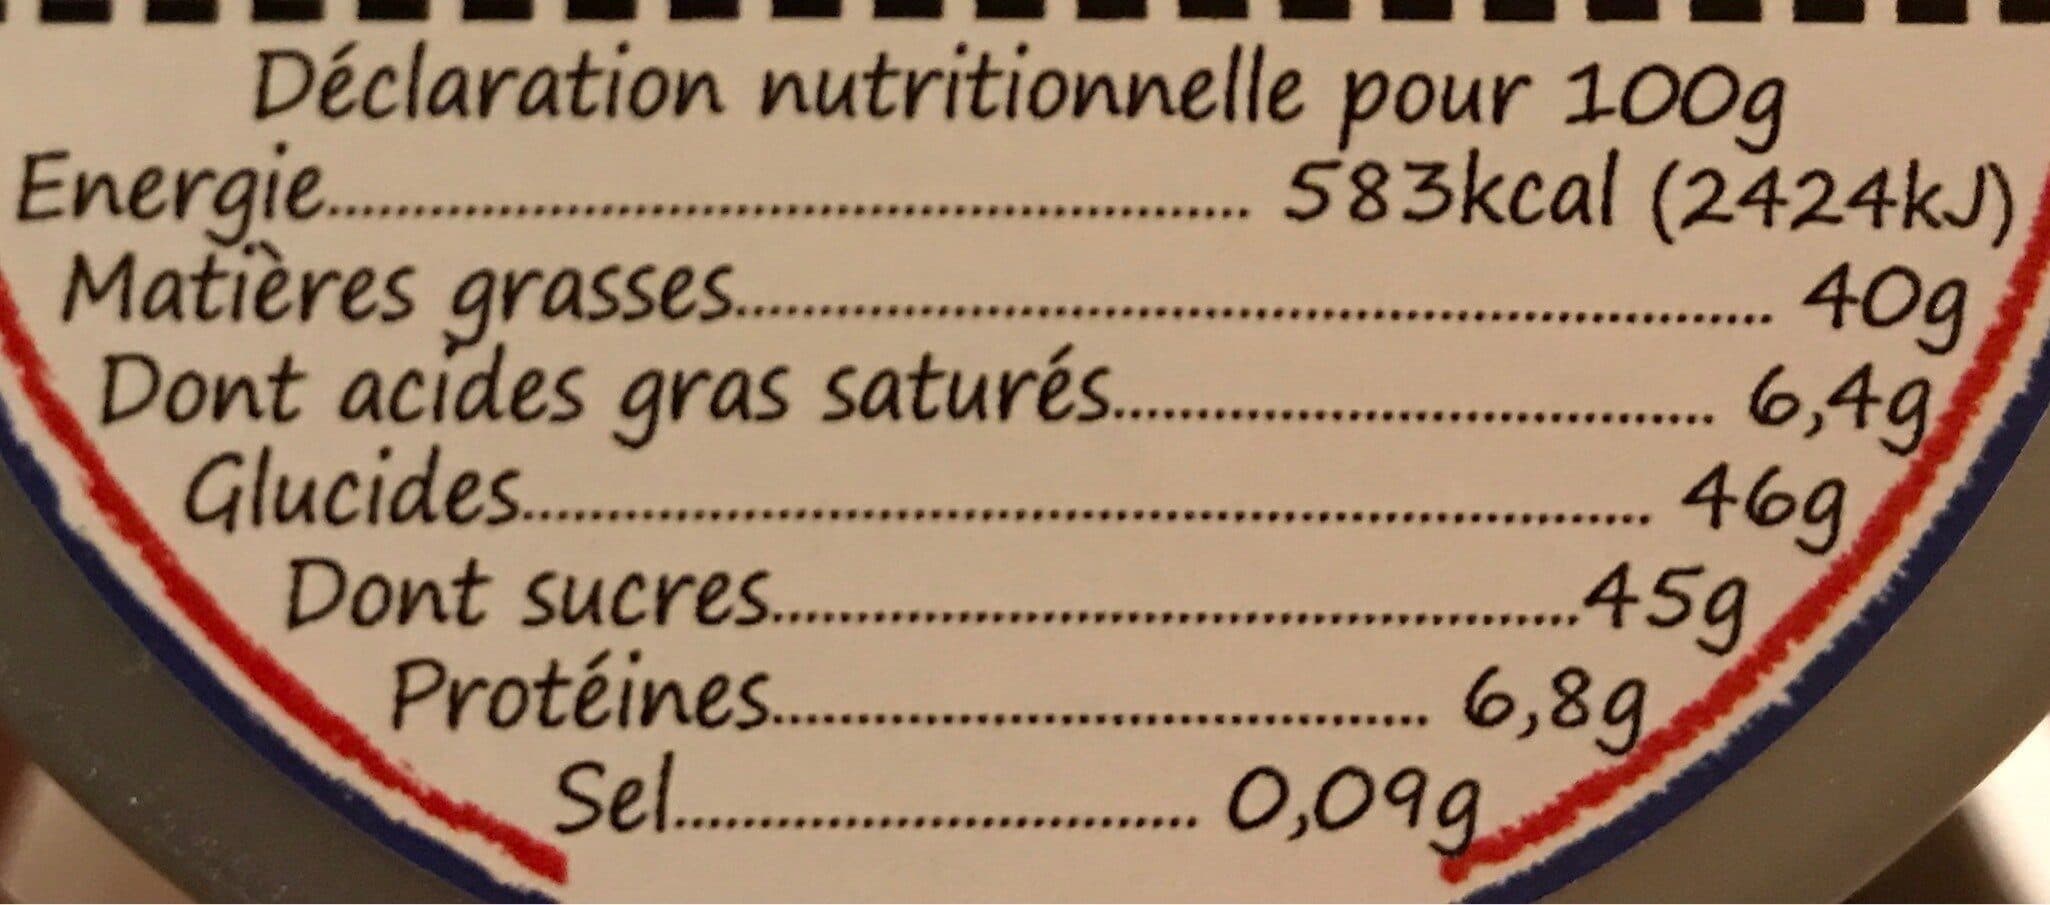 Déclaration nutritionnelle pour 100g
Energie........................................ 583kcal (2424kJ)
Matières grasses........................................ 40g
Dont acides gras saturés........................................ 6,4g
Glucides........................................ 46g
Dont sucres........................................45g
Protéines........................................ 6,8g
Sel........................................ 0,09g